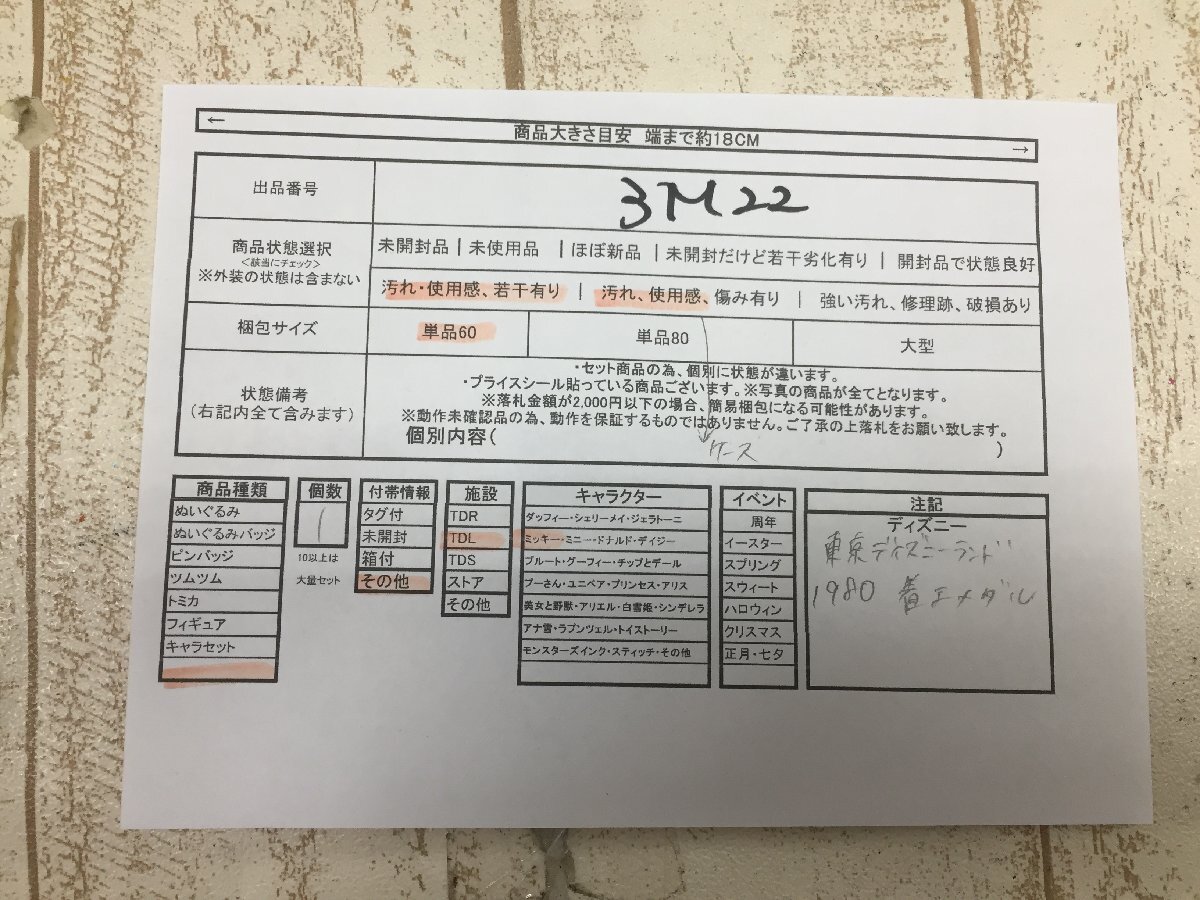 ←
商品大きさ目安 端まで約18CM
→
出品番号 3M22
商品状態選択
<該当にチェック>
※外装の状態は含まない
未開封品 | 未使用品 | ほぼ新品 | 未開封だけど若干劣化有り | 開封品で状態良好
汚れ・使用感、若干有り | 汚れ、使用感、傷み有り | 強い汚れ、修理跡、破損あり
梱包サイズ 単品60 単品80 大型
状態備考
(右記内全て含みます)
・セット商品の為、個別に状態が違います。
・プライスシール貼っている商品ございます。※写真の商品が全てとなります。
※落札金額が2,000円以下の場合、簡易梱包になる可能性があります。
※動作未確認品の為、動作を保証するものではありません。ご了承の上落札をお願い致します。
個別内容( ケース )
商品種類
ぬいぐるみ
ぬいぐるみバッジ
ピンバッジ
ツムツム
トミカ
フィギュア
キャラセット
個数
1
10以上は
大量セット
付帯情報
タグ付
未開封
箱付
その他
施設
TDR
TDL
TDS
ストア
その他
キャラクター
ダッフィー・シェリーメイ・ジェラトーニ
ミッキー・ミニー・ドナルド・デイジー
プルート・グーフィー・チップとデール
プーさん・ユニベア・プリンセス・アリス
美女と野獣・アリエル・白雪姫・シンデレラ
アナ雪・ラプンツェル・トイストーリー
モンスターズインク・スティッチ・その他
イベント
周年
イースター
スプリング
スウィート
ハロウィン
クリスマス
正月・七夕
注記
ディズニー
東京ディズニーランド
1980 着工メダル